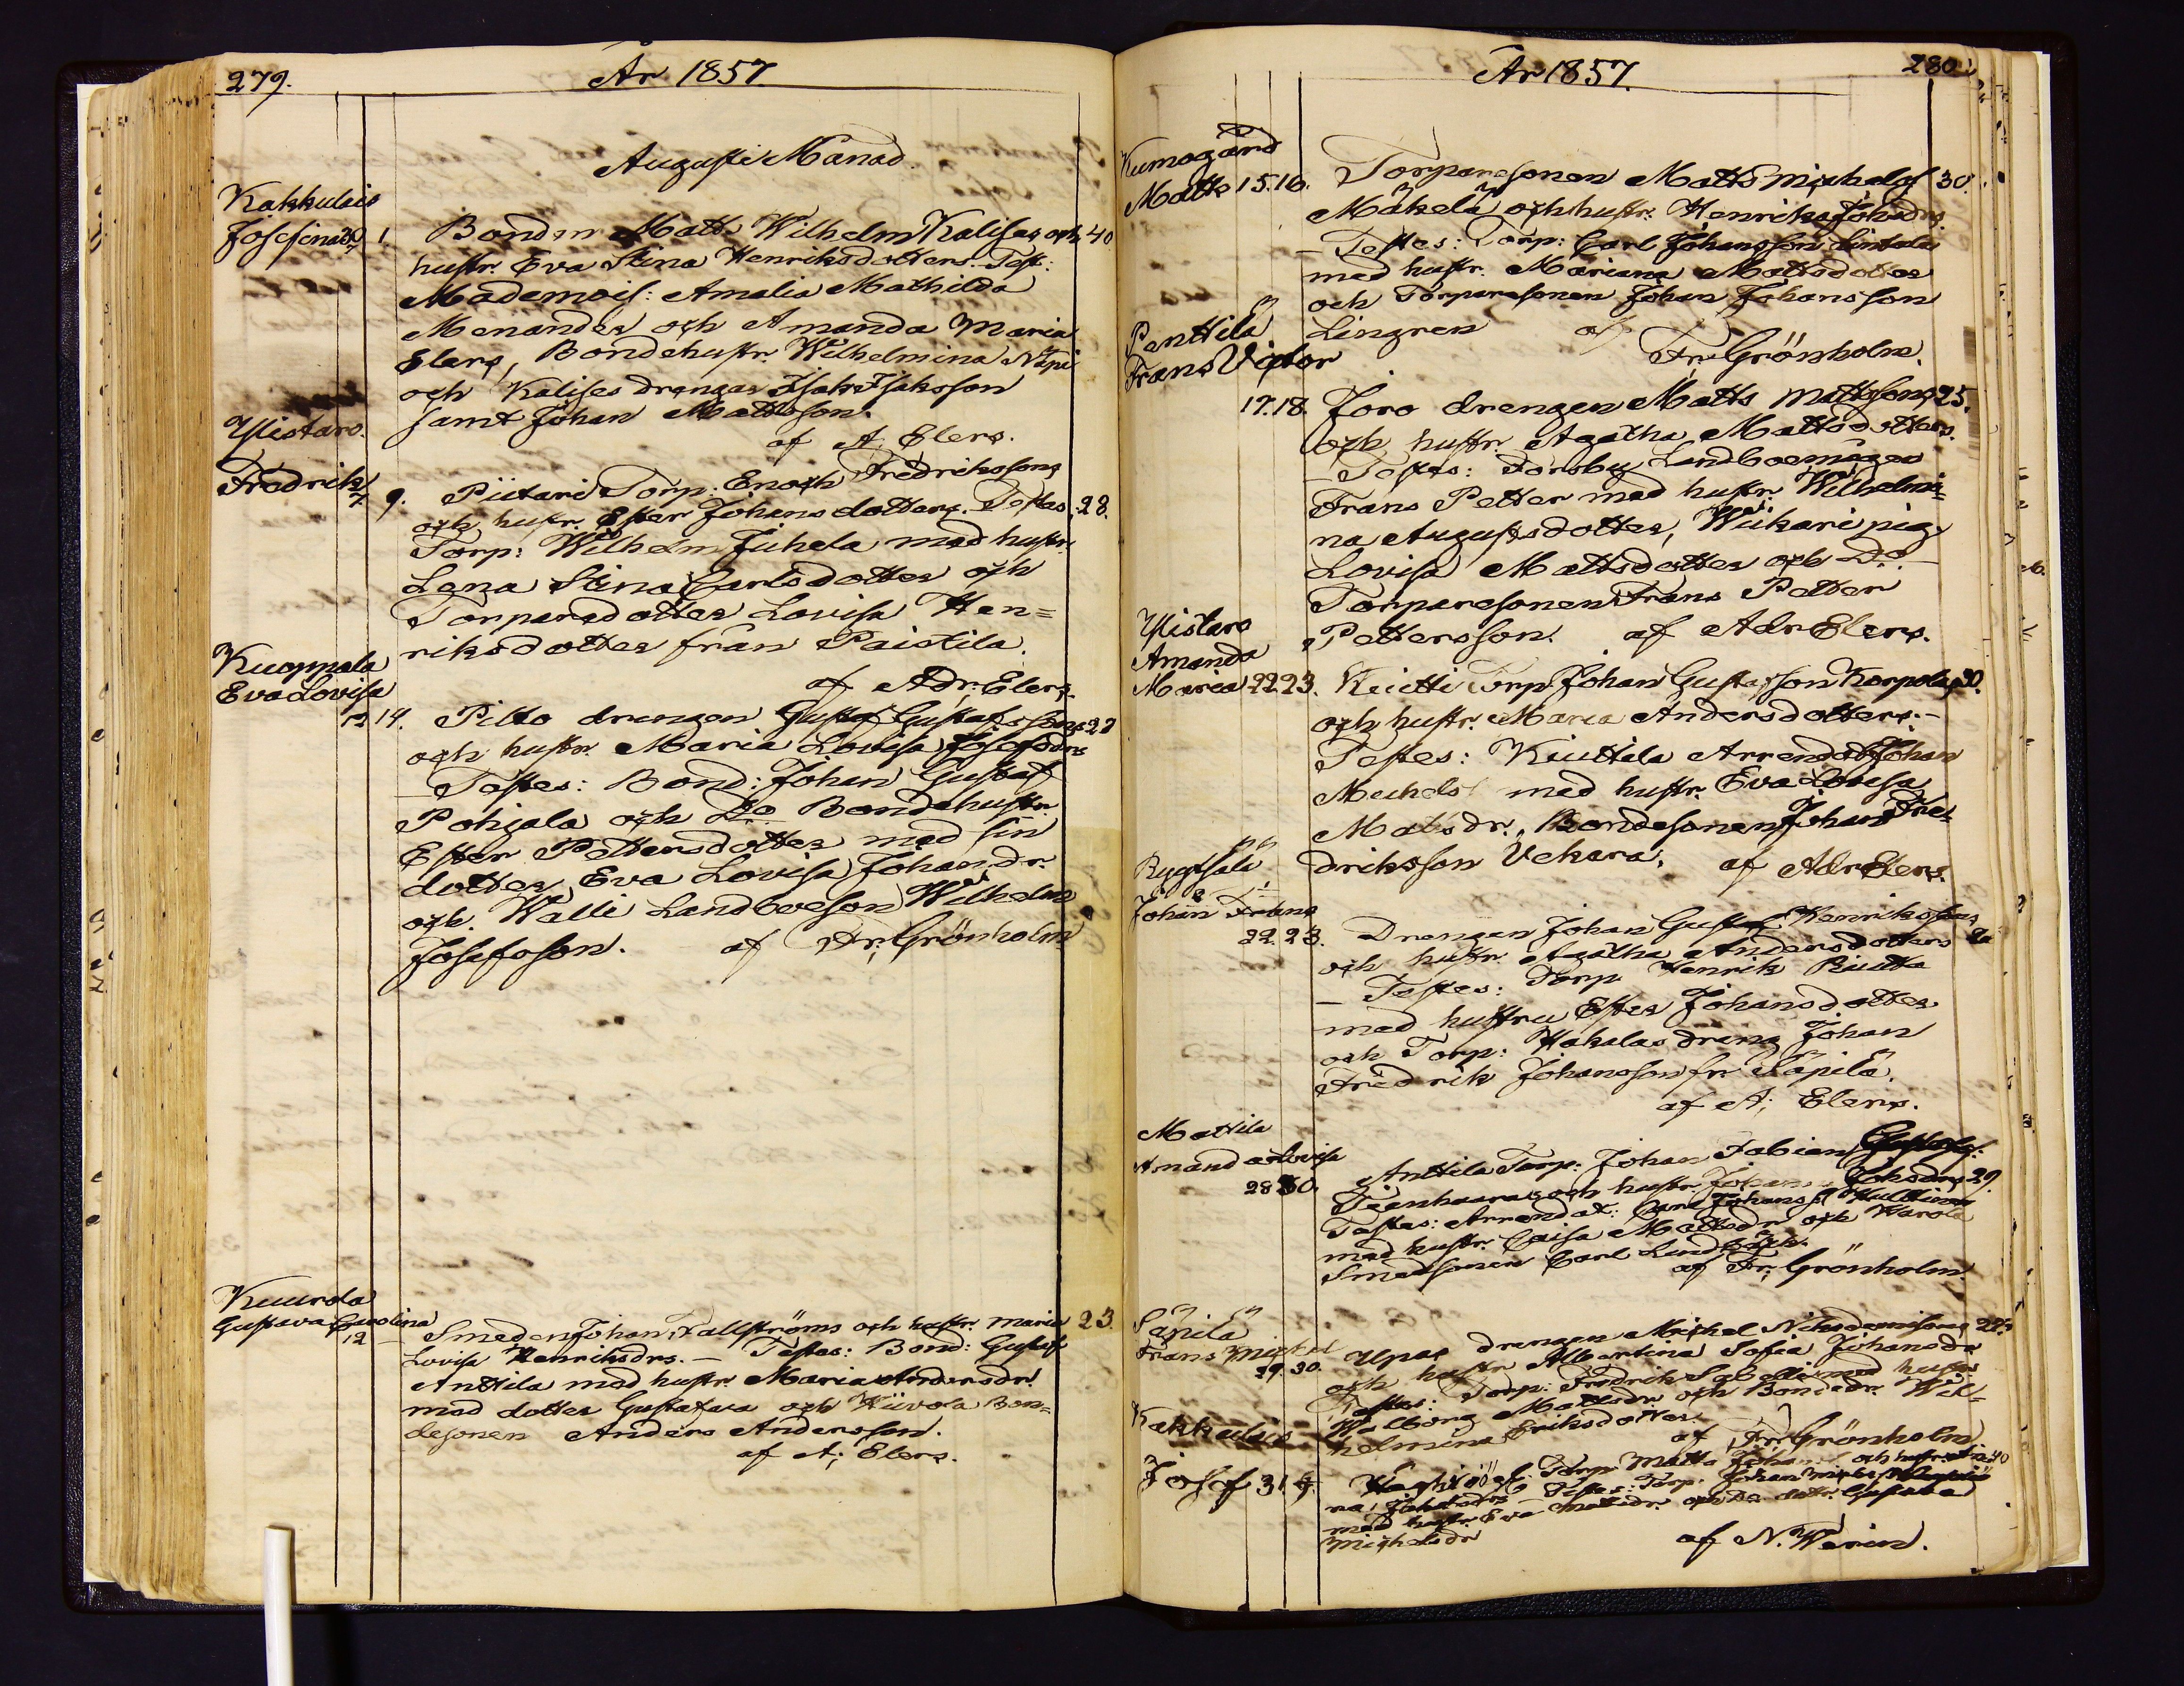 279.
År 1857.
Augusti Månad.
Kakkulais
Josefina
1.
Bonden Matts Wilhelm Kalisas och 40
hustr. Eva Stina Henriksdotters. Test:
Mademois: Amalia Mathilda
Menander och Amanda Maria
Elers, Bondehustr. Wilhelmina Näpi
och Kalises drengar Isak Isaksson
samt Johan Mattsson.
af A. Elers.
Ylistaro.
Fredrik
7 9.
Piitari Torp: Enoch Fredrikssons
och hustr. Ester Johansdotters. Testes: 28.
Torp: Wilhelm Juhela med hustr.
Lena Stina Carlsdotter och
Torparedotter Lovisa Hen=
riksdotter från Paistila.
af Adr. Elers.
Kuoppala
Eva Lovisa
12 14.
Pilto drengen Gustaf Gustafssons 27
och hustr. Maria Lovisa Josefsdrs
Testes: Bond: Johan Gustaf
Pohjala och Do Bondehustr.
Ester Pettersdotter med sin
dotter Eva Lovisa Johansdr.
och Walli Landboeson Wilhelm
Josefsson. af Fr. Grönholm
Kuurola
Gustava Carolina
12
Smeden Johan Hallströms och hustr. Maria 23.
Lovisa Henriksdrs. – Testes: Bond: Gustaf
Anttila med hustr. Maria Andersdr.
med dotter Gustafava och Wiivola Bon=
desonen Anders Andersson.
af A; Elers.
År 1857.
280
Kumogård
Matts 15.16.
Torparesonen Matts Michelss 30.
Mäkelä och hustr. Henrika Johsdrs
– Testes: Torp: Carl Johansson Lintala
med hustr. Mariana Mattsdotter
och Torparesonen Johan Johansson
Lingren af
Fr. Grönholm.
Penttilä
Frans Victor
17.18.
Joro drengen Matts Mattssons 25.
och hustr. Agatha Mattsdotters.
– Testes: Forsby Landboemågen
Frans Petter med hustr. Wilhelmi=
na Augustsdotter, Wiikari piga
Lovisa Mattsdotter och Do.
Torparesonen Frans Petter
Pettersson. af Adr Elers.
Ylistaro
Amanda
Maria 22.23.
Torp. Johan Gustafsson Korpelas 30.
och hustr. Maria Andersdotters. –
Testes: Kiuttila Arrendat. Johan
Michels med hustr. Eva Lovisa
Matsdr. Bondesonen Johan Fre=
driksson Vekara. af Adr Elers.
Johan Frans
22.23.
Drengen Johan Gustaf Henrikssons
och hustr. Agatha Andersdotters
– Testes: Torp. Henrik Riutta
med hustru Ester Johansdotter
och Torp: Hakalas dreng Johan
Fredrik Johansson fr. Säpilä.
af A; Elers.
Mattila
Amanda Lovisa
28 30.
Anttila Torp: Johan Fabian
och hustr. Johsdrs 29.
Testes: Arrendat: Carl Johanss
med hustr. Caisa Mattsdr. och Karola
Smedsonen Carl Lindbäck.
af Fr. Grönholm.
Säpilä
Frans Mickel
29.30.
drengen Michel Nikodemisons 27.
och hustr. Albertina Sofia Johansdr
Testes: Torp: Fredrik Sabelli med hustr.
Walborg Mattsdr. och Bondedr. Wil=
helmina Eriksdotter.
af Fr. Grönholm
Kakkulais
Josef 31.
Torp. Matts Johan och hustr. 40
na Johansdrs – Testes: Torp. Johan
med hustr. Eva Mattsdr. och Do. dottr. Gustava
Michelsdr
af N. Warin.